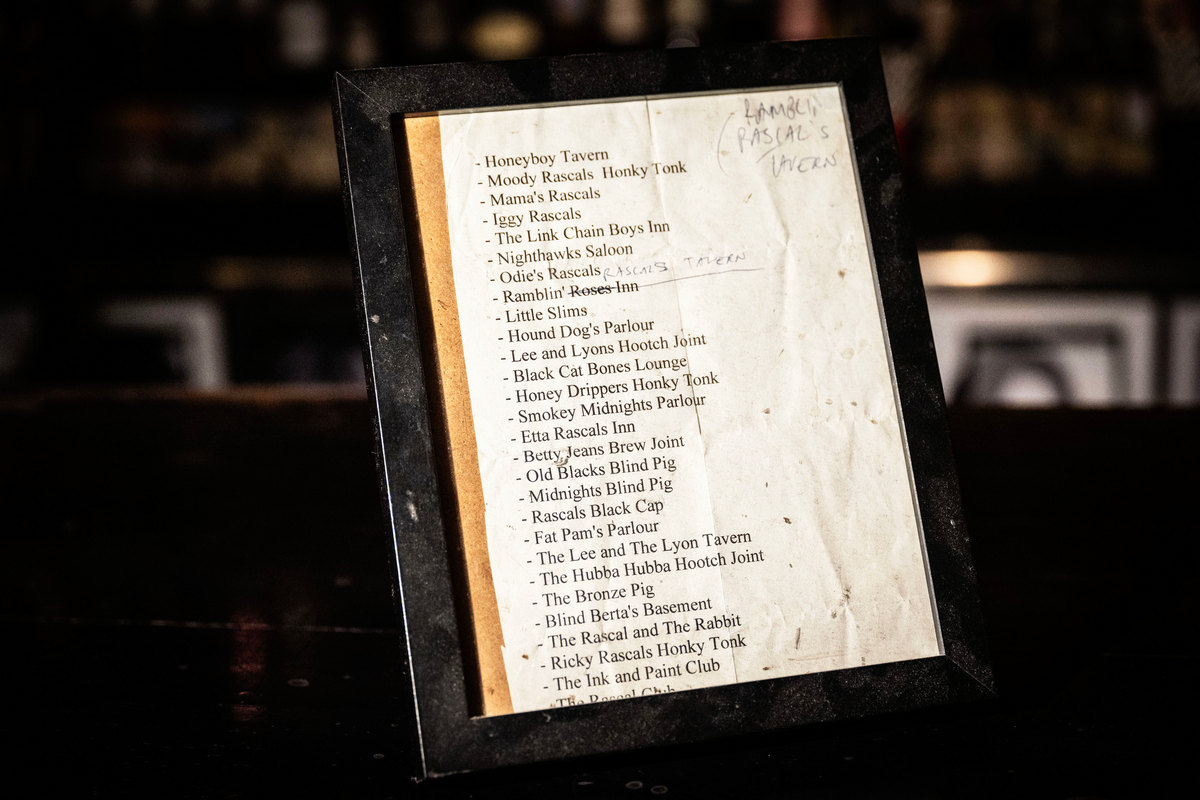 RAMBLIN
RASCAL'S
TAVERN
- Honeyboy Tavern
- Moody Rascals Honky Tonk
- Mama's Rascals
- Iggy Rascals
- The Link Chain Boys Inn
- Nighthawks Saloon
- Odie's Rascals
RASCALS TAVERN
- Ramblin' Roses Inn
- Little Slims
- Hound Dog's Parlour
- Lee and Lyons Hootch Joint
- Black Cat Bones Lounge
- Honey Drippers Honky Tonk
- Smokey Midnights Parlour
- Etta Rascals Inn
- Betty Jeans Brew Joint
- Old Blacks Blind Pig
- Midnights Blind Pig
- Rascals Black Cap
- Fat Pam's Parlour
- The Lee and The Lyon Tavern
- The Hubba Hubba Hootch Joint
- The Bronze Pig
- Blind Berta's Basement
- The Rascal and The Rabbit
- Ricky Rascals Honky Tonk
- The Ink and Paint Club
- The Rascal Club